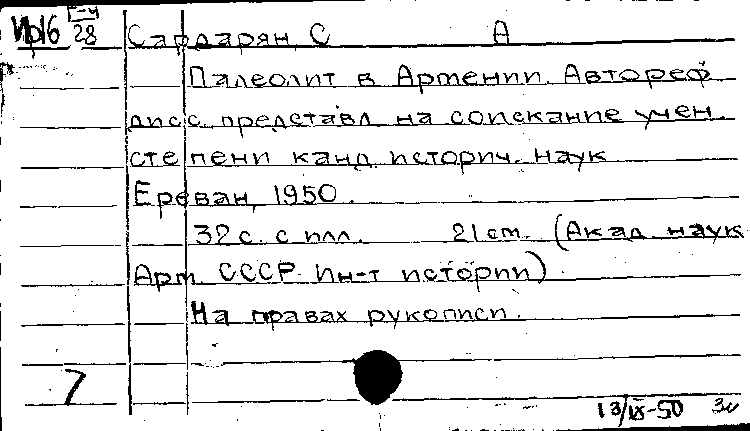 Сардарян, С А
28
Палеолит в Армении. Автореф
дисс. представл. на соискание учен.
степени канд. историч. наук
Ереван, 1950.
32 с. с илл. 21 см. (Акад. наук
Арм. СССР. Ин-т истории)
На правах рукописи.
7
13/IX-50